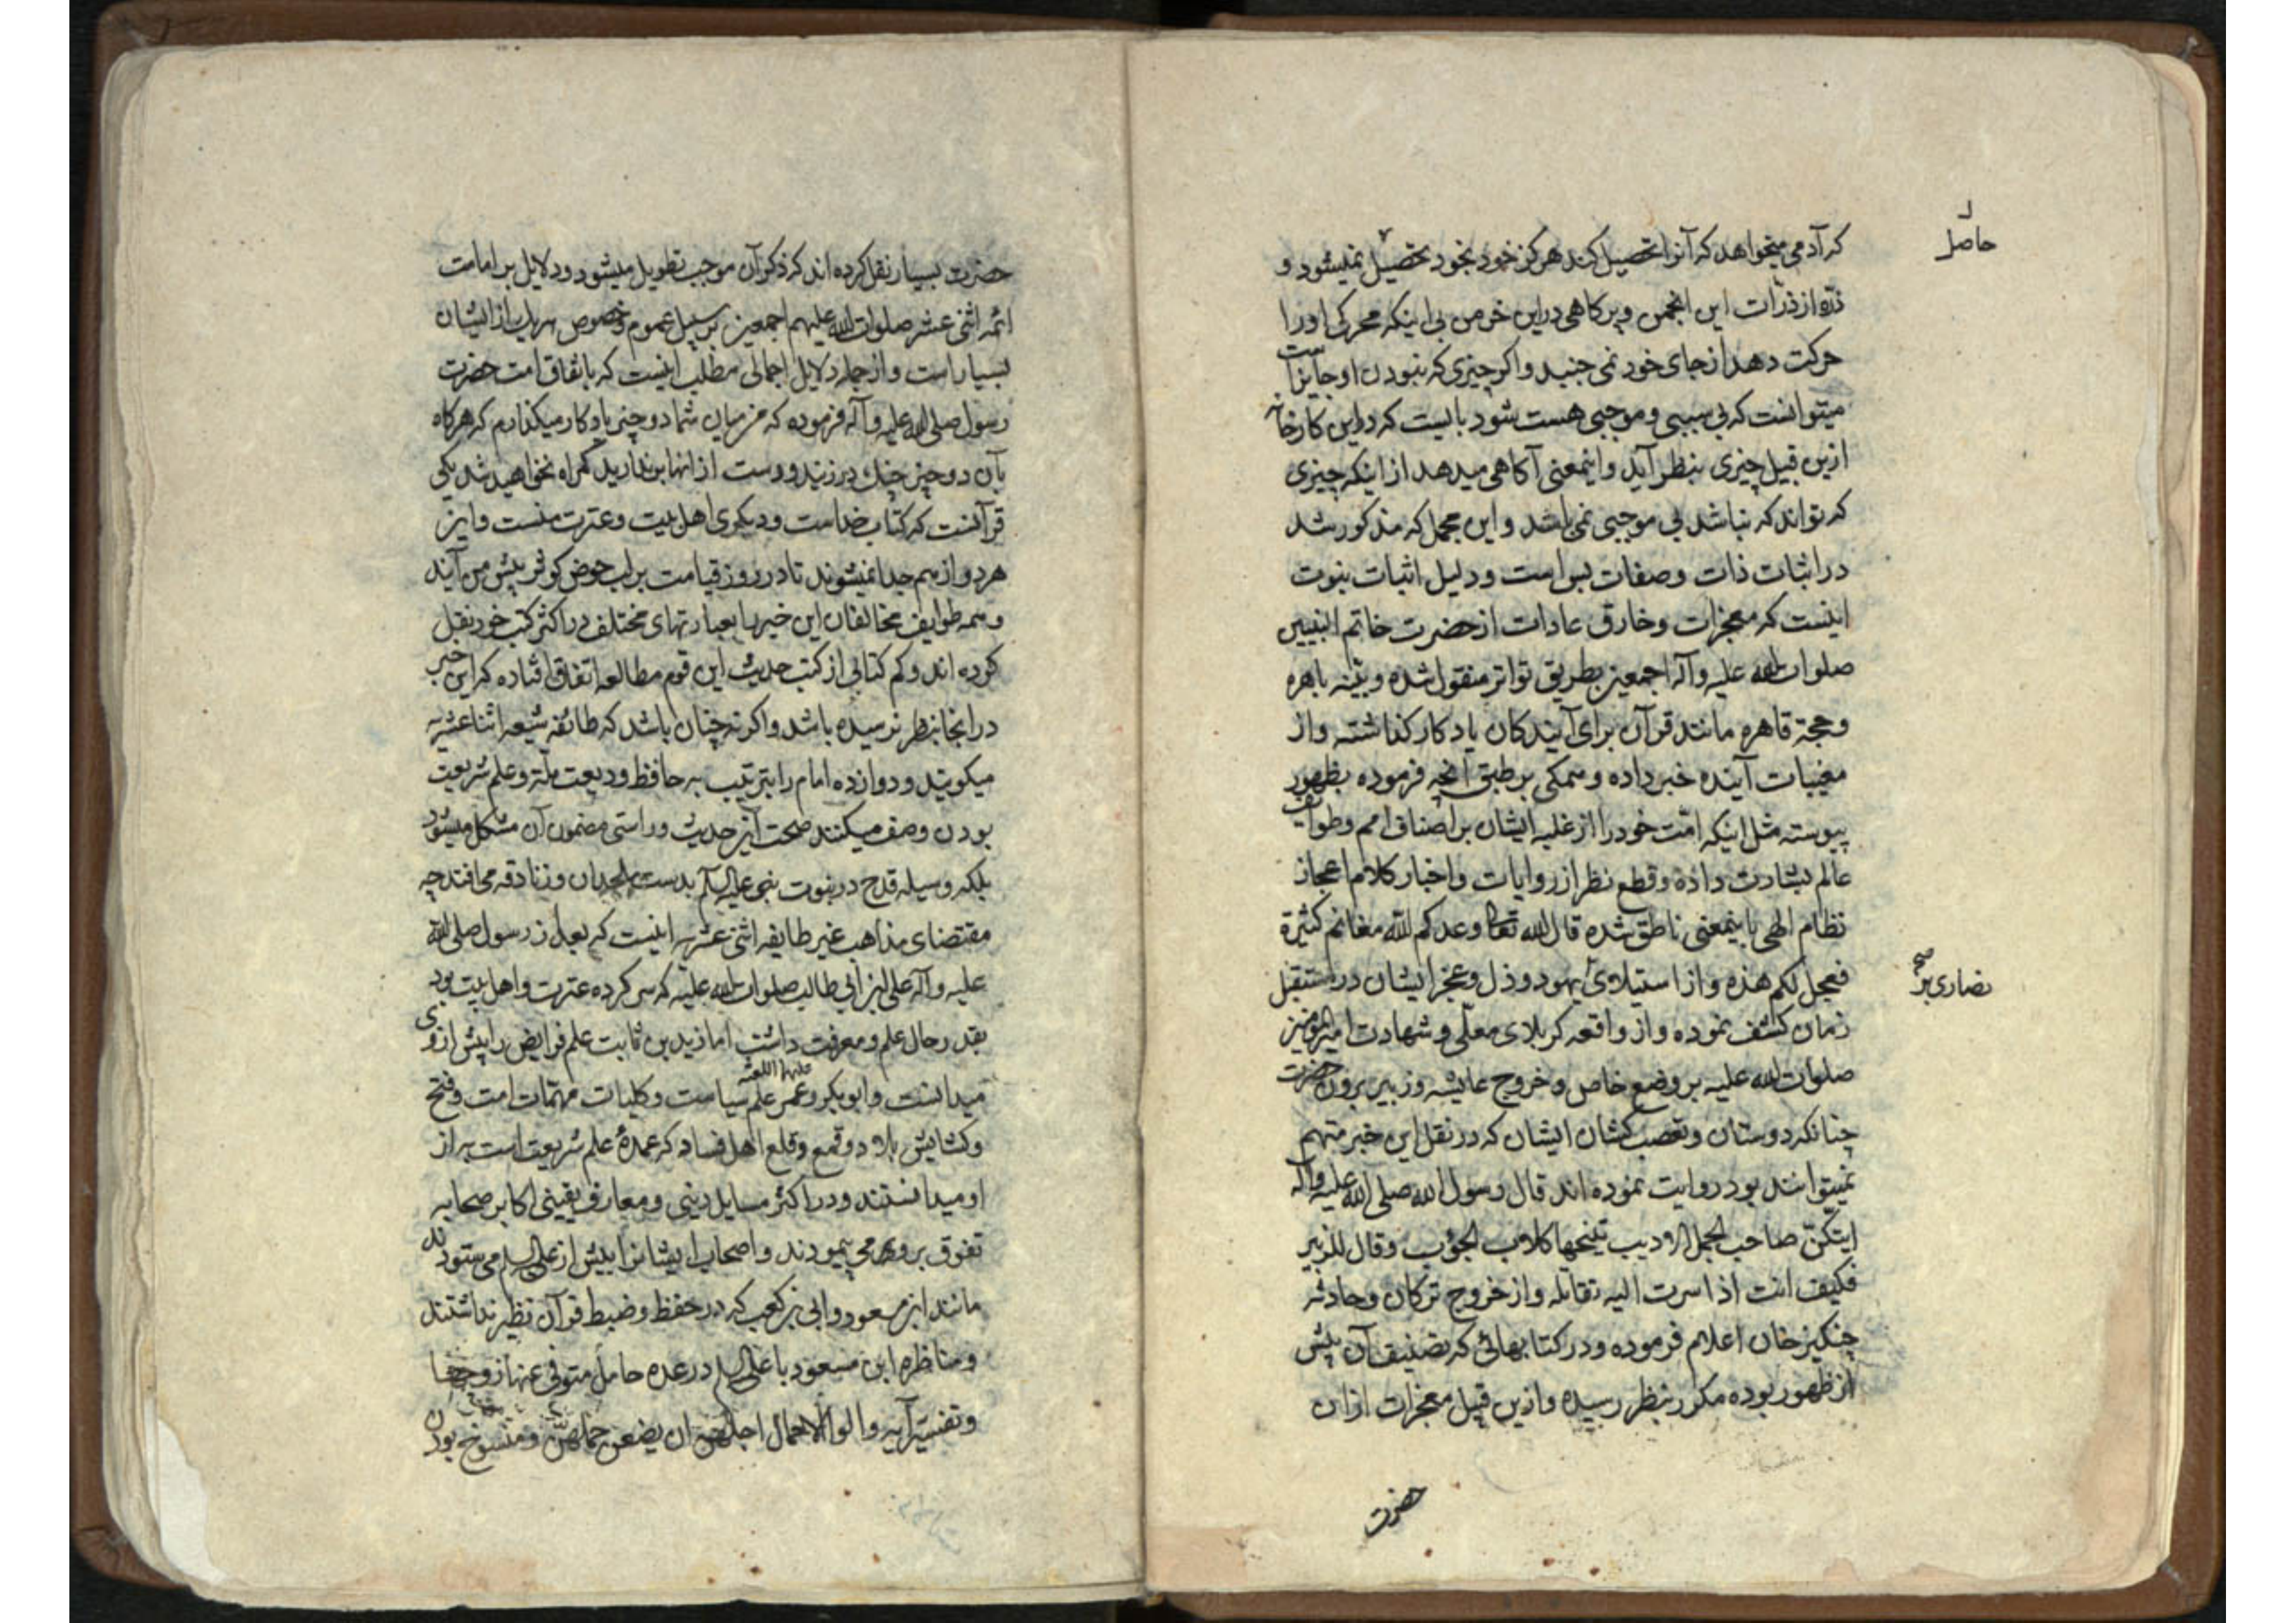 حاصل
که آدمی میخواهد که آنرا تحصیل کند هرکز خود بخود تحصیل نمیشود و
ذره از ذرات این انجمن و پرکاهی دراین خرمن بی اینکه محرکی اورا
حرکت دهد از جای خود نمی جنبد و اکر چیزی که نبودن او جایز است
میتوانست که بی سببی و موجبی هست شود بایست که دراین کارخانه
ازین قبیل چیزی بنظر آید و اینمعنی آکاهی میدهد از اینکه چیزی
که تواند که نباشد بی موجبی نمی باشد و این مجمل که مذکور شد
در اثبات ذات و صفات بس است و دلیل اثبات نبوت
اینست که معجزات و خارق عادات از حضرت خاتم النبیین
صلوات الله علیه و آله اجمعین بطریق تواتر منقول شده و بینه باهره
و حجة قاهره مانند قرآن برای آیندکان یادکار کذاشته و از
مغیبات آینده خبر داده و همکی بر طبق آنچه فرموده بظهور
پیوسته مثل اینکه امت خود را از غلبه ایشان بر اصناف امم و طوایف
عالم بشارت داده و قطع نظر از روایات و اخبار کلام اعجاز
نظام الهی باینمعنی ناطق شده قال الله تعالی وعدکم الله مغانم کثیرة
فعجل لکم هذه و از استیلای یهود و ذل و عجز ایشان در مستقبل
نصاری بر صح
زمان کشف نموده و از واقعه کربلای معلی و شهادت امیرالمومنین
صلوات الله علیه بر وضع خاص و خروج عایشه و زبیر برون حضرت
چنانکه دوستان و تعصب کشان ایشان که در نقل این خبر متهم
نمیتوانند بود روایت نموده اند قال رسول الله صلی الله علیه و آله
ایتکن صاحب الجمل الادیب تنبحها کلاب الحوب و قال للزبیر
فکیف انت اذا سرت الیه تقاتله و از خروج ترکان و حادثه
چنکیز خان اعلام فرموده و در کتابهائی که تصنیف آن پیش
از ظهور بوده مکرر بنظر رسیده و ازین قبیل معجزات ازان
حضرت
حضرت بسیار نقل کرده اند که ذکر آن موجب تطویل میشود و دلایل بر امامت
ائمه اثنی عشر صلوات الله علیهم اجمعین بر سبیل عموم و خصوص هریک از ایشان
بسیار است و از جمله دلایل اجمالی مطلب اینست که باتفاق امت حضرت
رسول صلی الله علیه و آله فرموده که من میان شما دو چیز یادکار میکذارم که هرکاه
بآن دو چیز چنک درزنید و دست از انها برندارید کمراه نخواهید شد یکی
قرآنست که کتاب خداست و دیکری اهل بیت و عترت منست و این
هردو از هم جدا نمیشوند تا در روز قیامت بر لب حوض کوثر پیش من آیند
و همه طوایف مخالفان این خبر را بعبارتهای مختلف در اکثر کتب خود نقل
کرده اند و کم کتابی از کتب حدیث این قوم مطالعه اتفاق افتاده که این خبر
درانجا بنظر نرسیده باشد و اکر نه چنان باشد که طائفه شیعه اثنا عشریه
میکویند و دوازده امام را بترتیب به حافظ ودیعت ملة و علم شریعت
بودن وصف میکنند صحت این حدیث و راستی مضمون آن مشکل میشود
بلکه وسیله قدح در نبوت نبی علیه السلم بدست ملحدان و زنادقه می افتد چه
مقتضای مذاهب غیر طایفه اثنی عشریه اینست که بعد از رسول صلی الله
علیه و آله علی ابن ابی طالب صلوات الله علیه که سرکرده عترت و اهل بیت بود
بقدر حال علم و معرفت داشت اما زید بن ثابت علم فرایض را پیش از وی
میدانست و ابو بکر و عمر علیهما اللعنه علم سیاست و کلیات مهمات امت و فتح
و کشایش بلاد و قمع و قلع اهل فساد که عمدهٔ علم شریعت است به از
او میدانستند و در اکثر مسایل دینی و معارف یقینی اکابر صحابه
تفوق بر وی می پیمودند و اصحاب ایشانرا بیش از علی علیه السلم می ستودند
مانند ابن مسعود و ابی بن کعب که در حفظ و ضبط قرآن نظیر نداشتند
و مناظره ابن مسعود با علی علیه السلم در عده حامل متوفی عنها زوجها
و تفسیر آیه و الوالاحمال اجلهن ان یضعن حملهن و منسوخ بودن